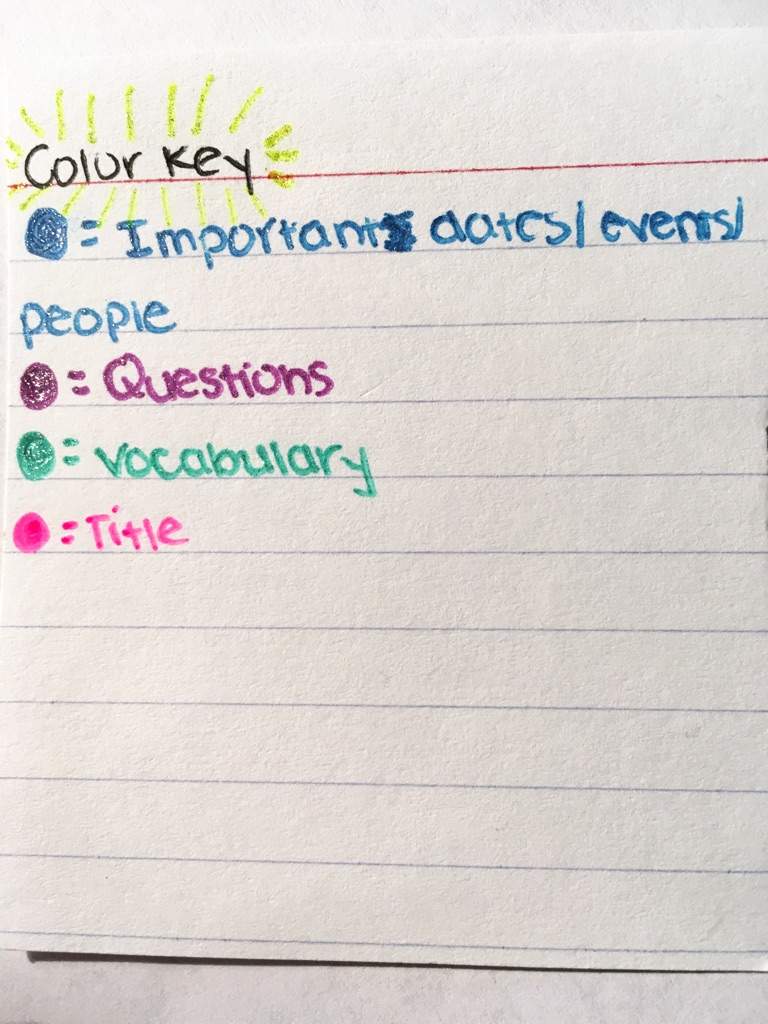 Color Key
= Important dates/ events/
people
= Questions
= vocabulary
= Title